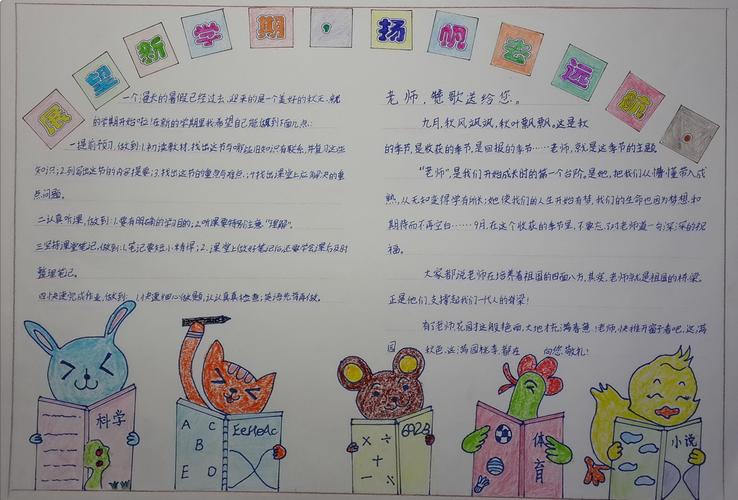 展望新学期，扬帆去远航。
一个漫长的暑假已经过去，迎来的是一个美好的秋天，新
的学期开始啦！在新的学期里我希望自己能做到下面几点：
一提前预习，做到：1.初读教材，找出这节与哪些旧知识有联系，并复习这些
知识；2.列写出这节的内容提要；3.找出这节的重点与难点；4.找出课堂上应解决的重
点问题。
二认真听课，做到：1.要有明确的学习目的；2.听课要特别注意“理解”。
三坚持课堂笔记，做到：1.笔记要短小精悍；2.课堂上做好笔记后，还要学会课后及时
整理笔记。
四快速完成作业，做到：1.快速细心做题，认认真真检查；
老师，赞歌送给您。
九月，秋风飒飒，秋叶飘飘。这是秋
的季节，是收获的季节，是回报的季节……老师，就是这季节的主题
“老师”，是我们开始成长时的第一个台阶。是她，把我们从懵懂带入成
熟，从无知变得学有所长；她使我们的人生开始有梦，我们的生命也因为梦想和
期待而不再空白……9月，在这个收获的季节里，不要忘了对老师道一句深深的祝
福。
大家都说老师在培养着祖国的四面八方，其实，老师就是祖国的桥梁。
正是他们，支撑起我们一代人的脊梁！
老师，快推开窗子看吧，这满
园 秋色，这满园桃李，都在 向您敬礼！
科学
A C
B
E D
EeHoAc
× ÷
+
- ×
6928
体
育
小说